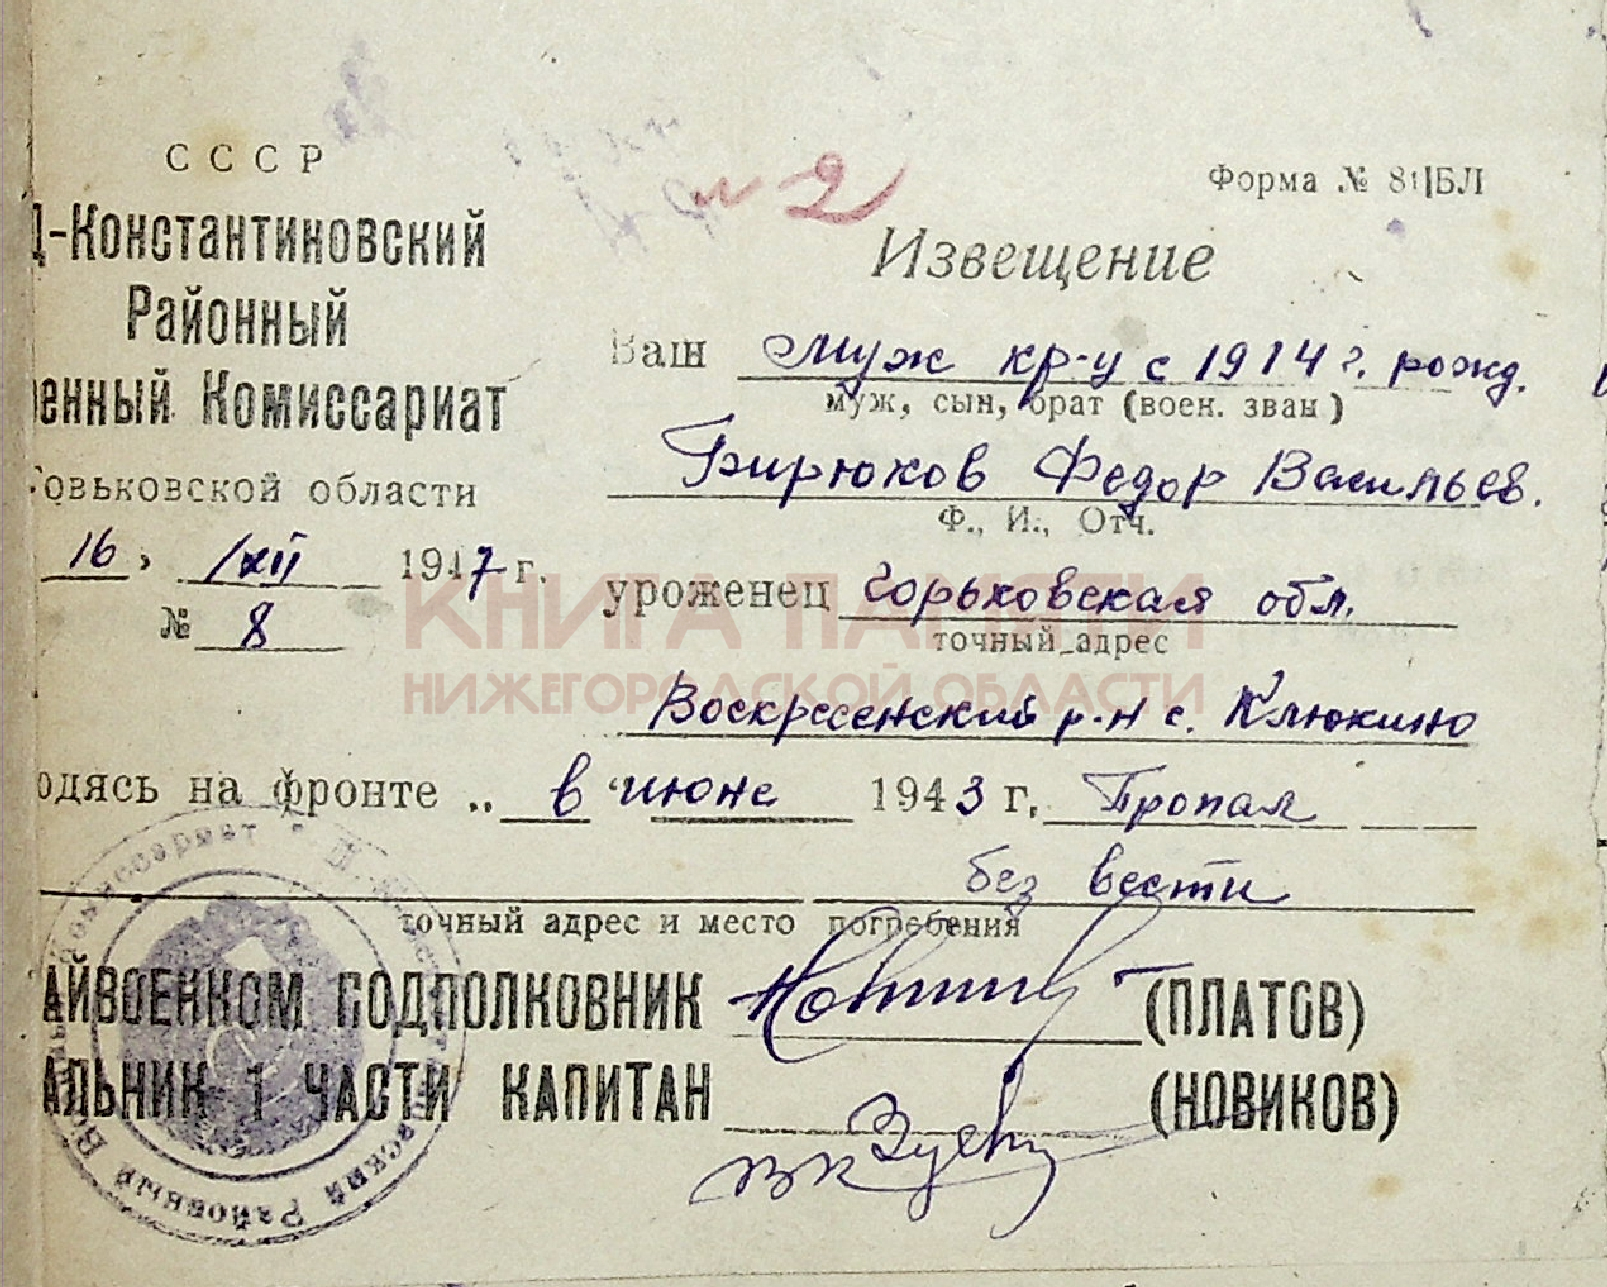 СССР
Форма № 81|БЛ
№ 2
Д-Константиновский
Районный
енный Комиссариат
Горьковской области
Извещение
Ваш муж кр-ц с 1914 г. рожд.
муж, сын, брат (воен. зван)
Бирюков Федор Васильев.
Ф., И., Отч.
16, XII 1947 г.
№ 8
уроженец Горьковская обл.
точный адрес
КНИГА ПАМЯТИ
НИЖЕГОРОДСКОЙ ОБЛАСТИ
Воскресенский р-н с. Клюкино
одясь на фронте „ в “ июне 1943 г. Пропал
без вести
точный адрес и место погребения
АЙВОЕНКОМ ПОДПОЛКОВНИК (ПЛАТОВ)
АЛЬНИК 1 ЧАСТИ КАПИТАН (НОВИКОВ)